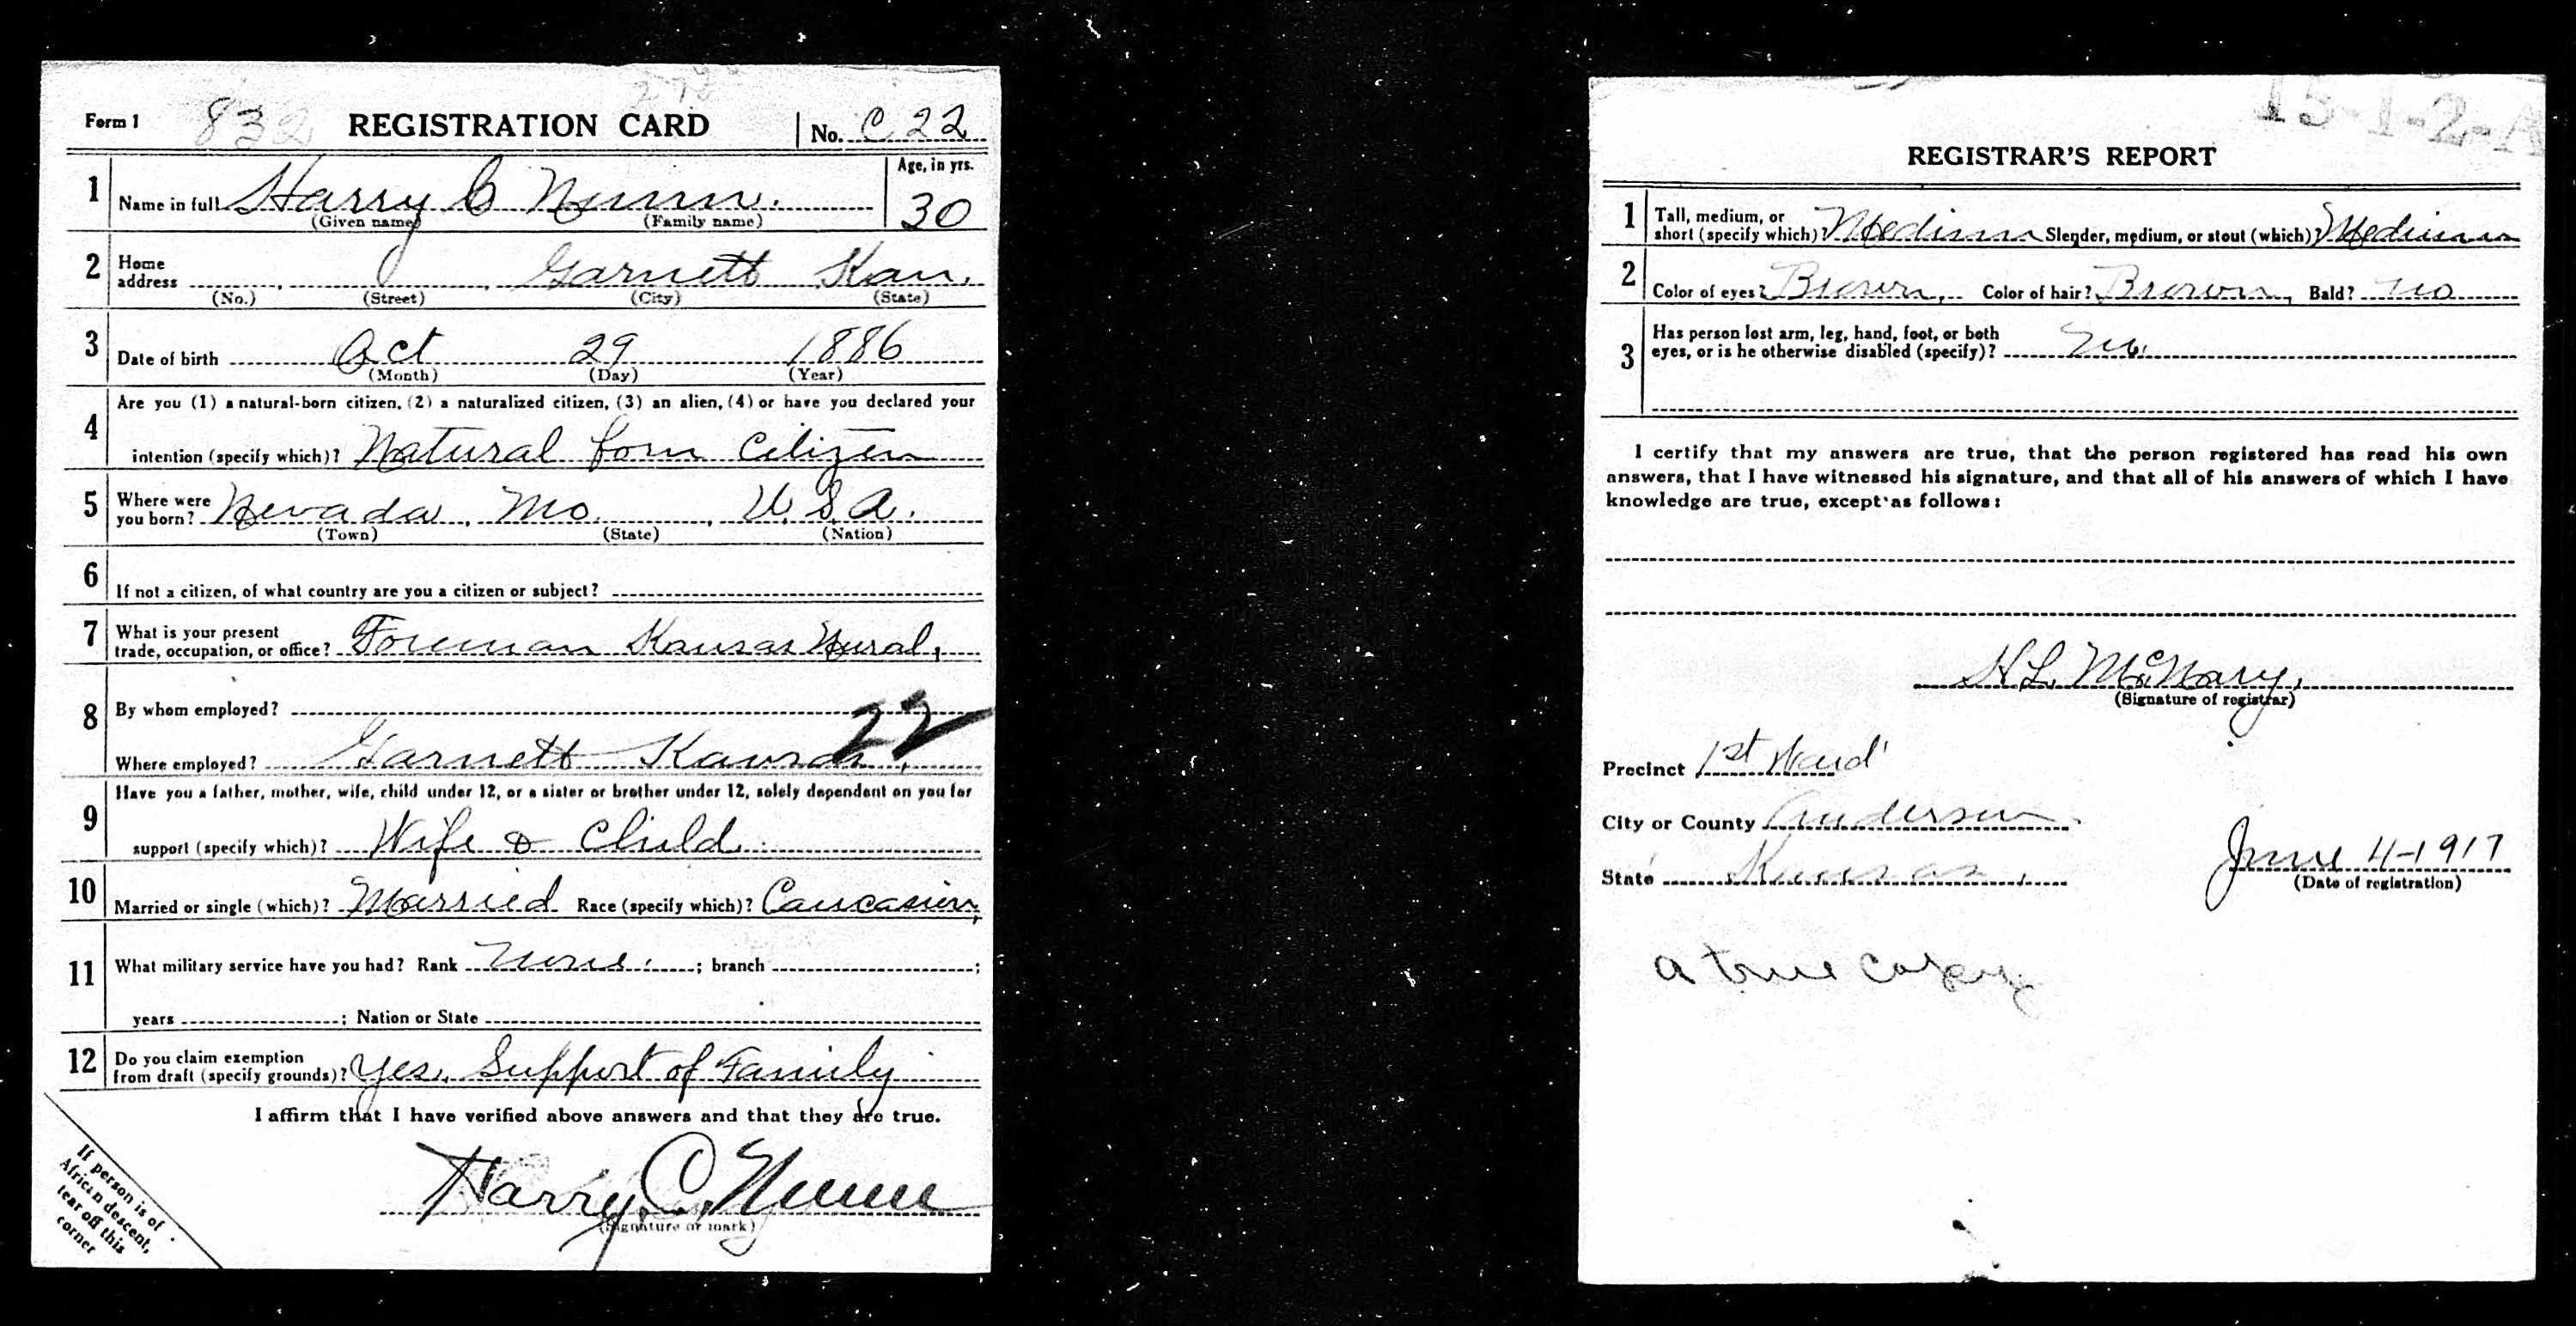 Form 1 832 REGISTRATION CARD No. C 22
1 Name in full Harry C Nunn. Age, in yrs. 30
(Given name) (Family name)
2 Home address Garnett Kan.
(No.) (Street) (City) (State)
3 Date of birth Oct 29 1886
(Month) (Day) (Year)
4 Are you (1) a natural-born citizen, (2) a naturalized citizen, (3) an alien, (4) or have you declared your
intention (specify which)? Natural born Citizen
5 Where were you born? Nevada, Mo., U.S.A.
(Town) (State) (Nation)
6 If not a citizen, of what country are you a citizen or subject?
7 What is your present
trade, occupation, or office? Foreman Kansas Nural,
8 By whom employed?
22
Where employed? Garnett Kansas,
9 Have you a father, mother, wife, child under 12, or a sister or brother under 12, solely dependent on you for
support (specify which)? Wife & Child
10 Married or single (which)? Married Race (specify which)? Caucasian,
11 What military service have you had? Rank None. ; branch ;
years ; Nation or State
12 Do you claim exemption
from draft (specify grounds)? Yes, Support of Family
I affirm that I have verified above answers and that they are true.
Harry C. Nunn
(Signature or mark)
If person is of
African descent,
tear off this
corner
15-1-2-A
REGISTRAR'S REPORT
1 Tall, medium, or
short (specify which)? Medium Slender, medium, or stout (which)? Medium
2 Color of eyes? Brown, Color of hair? Brown, Bald? no
3 Has person lost arm, leg, hand, foot, or both
eyes, or is he otherwise disabled (specify)? No.
I certify that my answers are true, that the person registered has read his own
answers, that I have witnessed his signature, and that all of his answers of which I have
knowledge are true, except as follows:
H L McNary,
(Signature of registrar)
Precinct 1st Ward
City or County Anderson
State Kansas,
June 4-1917
(Date of registration)
a true copy